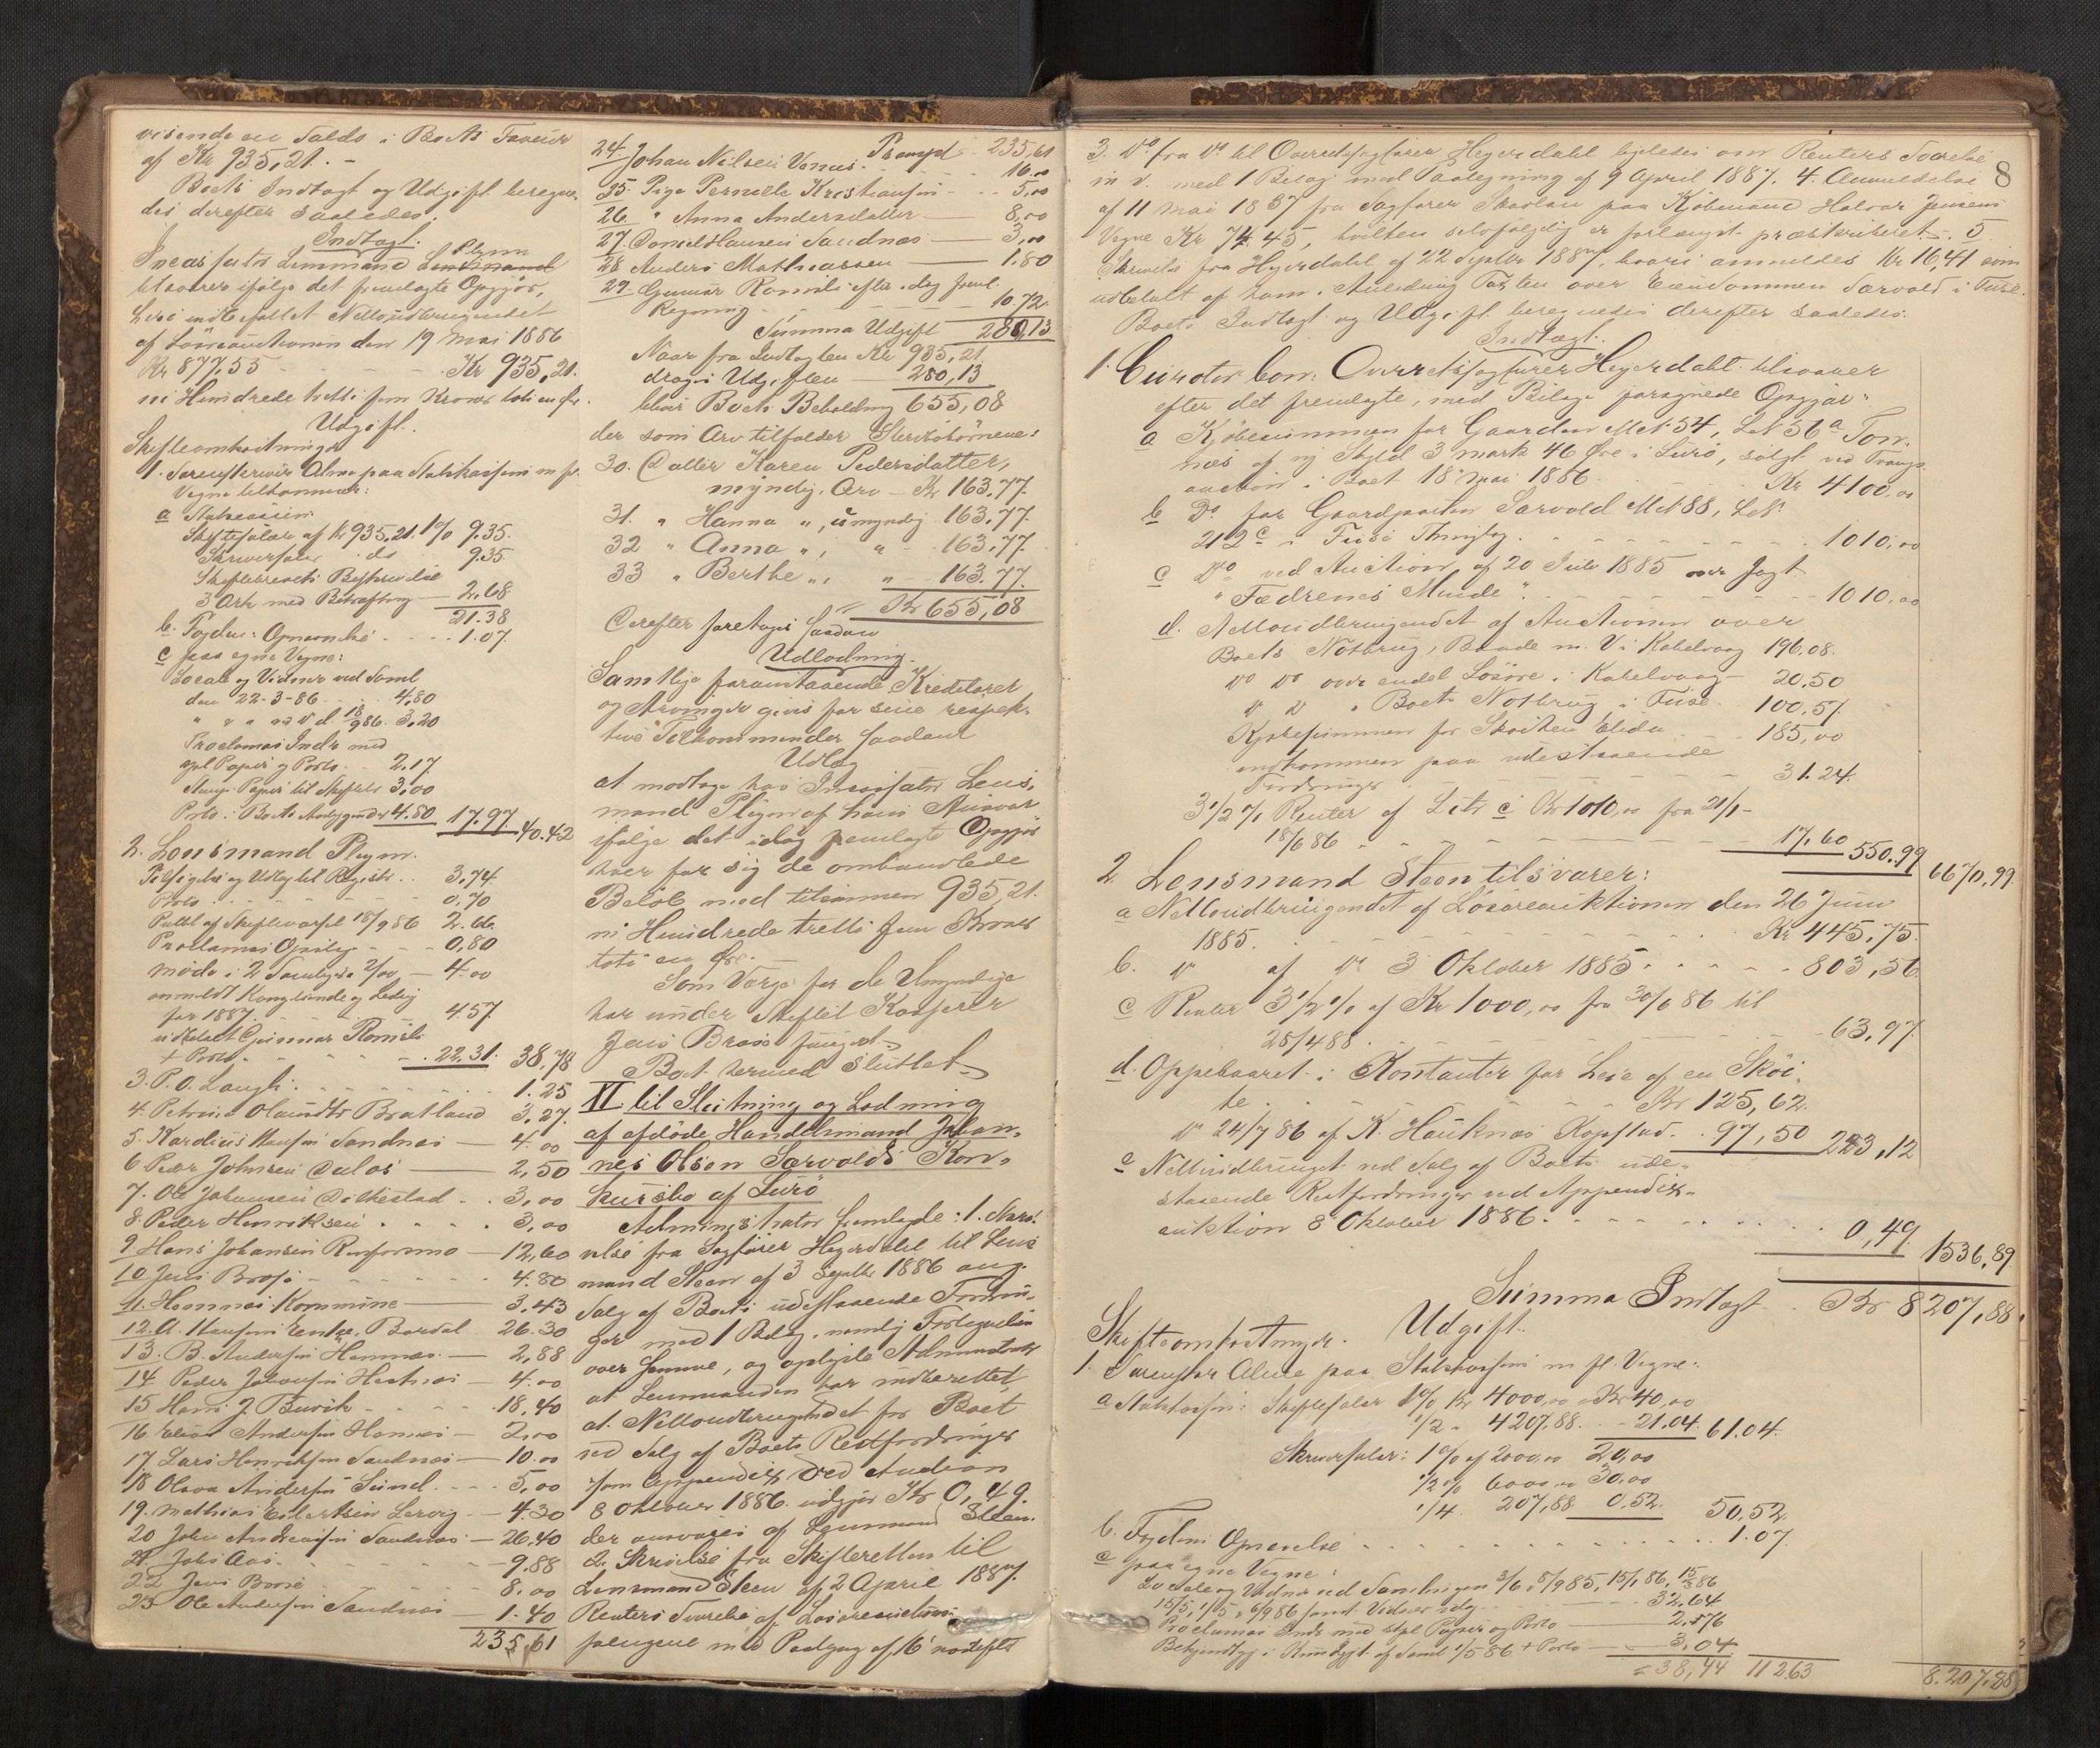 visende en Saldo i Boets Faveur
af Kr 935,21. -
Boets Indtægt og Udgift beregne-
des derefter saaledes.
Indtægt.
Incassator Lensmand Plejm
tilsvarer ifølge det fremlagte Opgjør,
heri indbefattet Nettoudbringendet
af Løsøreauctionen den 19 Mai 1886
Kr 877,55 - - - Kr 935,21.
ni Hundrede tretti fem Kroner toti en Øre.
Udgift.
Skifteomkostninger
1. Sorenskriver Alme paa Statskassens m fl.
Vegne tilkommer:
a Statskassen
Skiftesalær af Kr 935,21. 1% 9.35.
Skriversalær do 9.35
Skifteberets Beskrivelse
3 Ark med Bekræftng 2.68
21.38
b. Fogden: Opnævnelse - - - 1.07.
c paa egne Vegne:
Locale og Vidner ved Saml
den 22-3-86 4,80
" " " 18/9 86. 3,20
Proclamas Indr med
stpl Papir og Porto - 2.17.
Stemp. Papir til Skiftet 3,00
Porto i Boets Anliggender 4.80 17.97. 40.42
2. Lensmand Plejm.
Tilsigelse og Udlæg til Registr. 3,74
Porto 0,70
Publ af Skiftevarsel 18/9 86 2.66
Proclamas Opslag - - 0,80
møde i 2 Samlinger 2/00, - 4.00
anmeldt Kongetiende og Ledig
for 1887 4.57.
udbetalt Gunnar Romsli
+ Porto - - - 22.31. 38,78
3. P. O. Laugli. - - - 1.25
4. Petrine Olausdtr Bratland 3,27.
5. Kardius Hansen Sandnæs - 4.00
6 Peder Johnsen Dalos - 2,50
7. Ole Johansen Dilkestad - 3,00
8. Peder Henriksen - - - 3,00
9 Hans Johansen Rusforsmo - 12,60
10. Jens Brose - - - 4.80
11. Hemnæs Kommune - 3.43
12. A. Hansens Enke, Bardal 26.30
13. B. Andersen Hemnæs. - 2,88
14 Peder Johansen Hestnæs - 4.00
15 Hans J. Buvik - - - 18.40
16. Elias Andersen Hemnæs - 2.00
17 Lars Henriksen Sandnæs - 10.00
18 Olava Andersen Sund. - 5,00
19. Mathias Eilertsen Lervig - 4.30
20 John Andreassen Sandnæs - 26.40
21. Johs Aas. - - - 9.88
22 Jens Brose - - - 8.00
23 Ole Andersen Sandnæs - 1.40
235,61
Transpt - 235,61
24. Johan Nilsen Vennes. - - 16.00
25 Pige Pernille Kristiansen - - 5,00
26. " Anna Andersdatter - 8,00
27. Daniel Hansen Sandnæs - 3,00
28 Anders Mathiassen - 1.80
29. Gunnar Romsli efter idag freml.
Regning - - - 10.72
Summa Udgift 280,13
Naar fra Indtægten Kr 935,21
drages Udgiften - 280,13
bliver Boets Beholdning 655,08
der som Arv tilfalder Sterbbørnene:
30. Datter Karen Pedersdatter,
myndig. Arv - Kr 163.77.
31. " Hanna ", umyndig 163.77.
32 " Anna ", " - 163.77.
33 " Berthe ", " - 163.77.
Kr 655,08
Derefter foretoges saadan
Udlodning.
Samtlige foranstaaende Kreditorer
og Arvinger gives for sine respek-
tive Tilkommender saadant
Udlæg
at modtage hos Incassator Lens-
mand Plejm af hans Ansvar
ifølge det idag fremlagte Opgjør
hver for sig de omhandlede
Beløb med tilsammen 935,21.
ni Hundrede tretti fem Kroner
toti en Øre. -
Som Værge for de Umyndige
har under Skiftet Kasserer
Jens Brose fungeret.
Boet hermed sluttet.
XI til Slutning og Lodning
af afdøde Handelsmand Johan-
nes Olsen Sarvolds Kon-
kursbo af Lurø
Administrator fremlagde: 1. Skri-
velse fra Sagfører Hejerdahl til Lens
mand Steen af 3 Septbr 1886 ang.
Salg af Boets udestaaende Fordrin-
ger med 1 Bilag, nemlig Fortegnelsen
over samme, og oplyste Administrator
at Lensmanden har indberettet,
at Nettoudbringendet for Boet
ved Salg af Boets Restfordringer
som Appendix ved Auction
8 Oktober 1886. udgjør Kr 0,49.
der ansvares af Lensmand Steen.
2. Skrivelse fra Skifteretten til
Lensmand Steen af 2 April 1887.
Renters Svarelse af Løsøreauctions-
pengene med Paategng af 16 næstefter
8
3. Do fra Do til Overretssagfører Hejerdahl ligeledes om Renters Svarelse
m v. med 1 Bilag med Paategning af 9 April 1887. 4. Anmeldelse
af 11 Mai 1887 fra Sagfører Skavlan paa Kjøbmand Halvor Jensens
Vegne Kr 74.45, hvilken selvfølgelig er forlængst præskriberet. 5
Skrivelse fra Hejerdahl af 22 Septbr 1887, hvori anmeldes Kr 16,41 som
udbetalt af ham i Anledning Taxten over Eiendommen Sarvold i Fuse.
Boets Indtægt og Udgift beregnedes derefter saaledes:
Indtægt.
1. Curator bon: Overretssagfører Hejerdahl tilsvarer
efter det fremlagte, med Bilage forsynede Opgjør:
a Kjøbesummen for Gaarden Mat 54, Lnr 56a Ton-
næs af ny Skyld 3 mark 46 Øre i Lurø, solgt ved Tvangs
auction i Boet 18 Mai 1886. - - - Kr 4100.00
b Do for Gaardparten Sarvold Mat 88, Lnr
212c i Fuse Thinglag. - - - 1010,00
c Do ved Auction af 20 Juli 1885 over Jagt
"Fædrenes Minde". - - - 1010,00
d. Nettoudbringendet af Auctionen over
Boets Notbrug, Baade m. V. i Kabelvaag 196.08.
Do Do over endel Løsøre i Kabelvaag - 20.50
" " " Boets Notbrug i Fuse. 100,57.
Kjøbesummen for Skøiten Elida - - 185,00
indkommen paa udestaaende
Fordringer - - - 31.24.
3 1/2 % Renter af Litr c Kr 1010,00 fra 21/1 -
18/6 86 - - - 17.60 550.99 6670,99.
2. Lensmand Steen tilsvarer:
a Nettoudbringendet af Løsøreauktionen den 26 Juni
1885. - - - Kr 445,75.
b. Do af Do 3 Oktober 1885 - - - 803,56
c Renter 3 1/2 % af Kr 1000,00 fra 30/6 86 til
25/4 88 - - - 63,97.
d. Oppebaaret i Kontanter for Leie af en Skøi-
te - - - Kr 125,62.
Do 24/7 86 af K. Hauknæs Kopstad. - 97,50 223,12
e Nettoudbringet ved Salg af Boets ude-
staaende Restfordringer ved Appendix-
auktion 8 Oktober 1886. - - - 0,49. 1536,89
Summa Indtægt. Kr 8207,88.
Udgift.
Skifteomkostninger.
1. Sorenskr Alme paa Statskassens m fl. Vegne:
a Statskassen: Skiftesalær 1% Kr 4000,00 = Kr 40,00
1/2 " 4207.88. - 21.04. 61.04.
Skriversalær: 1% af 2000,00 20,00
1/2 % 6000,00 30,00
1/4 207,88 0.52. 50,52
b. Fogdens Opnævnelse - - - 1.07.
c paa egne Vegne:
Locale og Vidner ved Samlingen 3/6, 5/9 85, 15/1 86, 15/3 86
15/5, 1/5 6/9 86 samt Vidner idag - - - 32,64
Proclamas Indr med stpl Papir og Porto 2,76
Bekjendtgj i Kundgjt af Saml 1/5 86 + Porto - 3.04
= 38,44 112.63 8.207,88